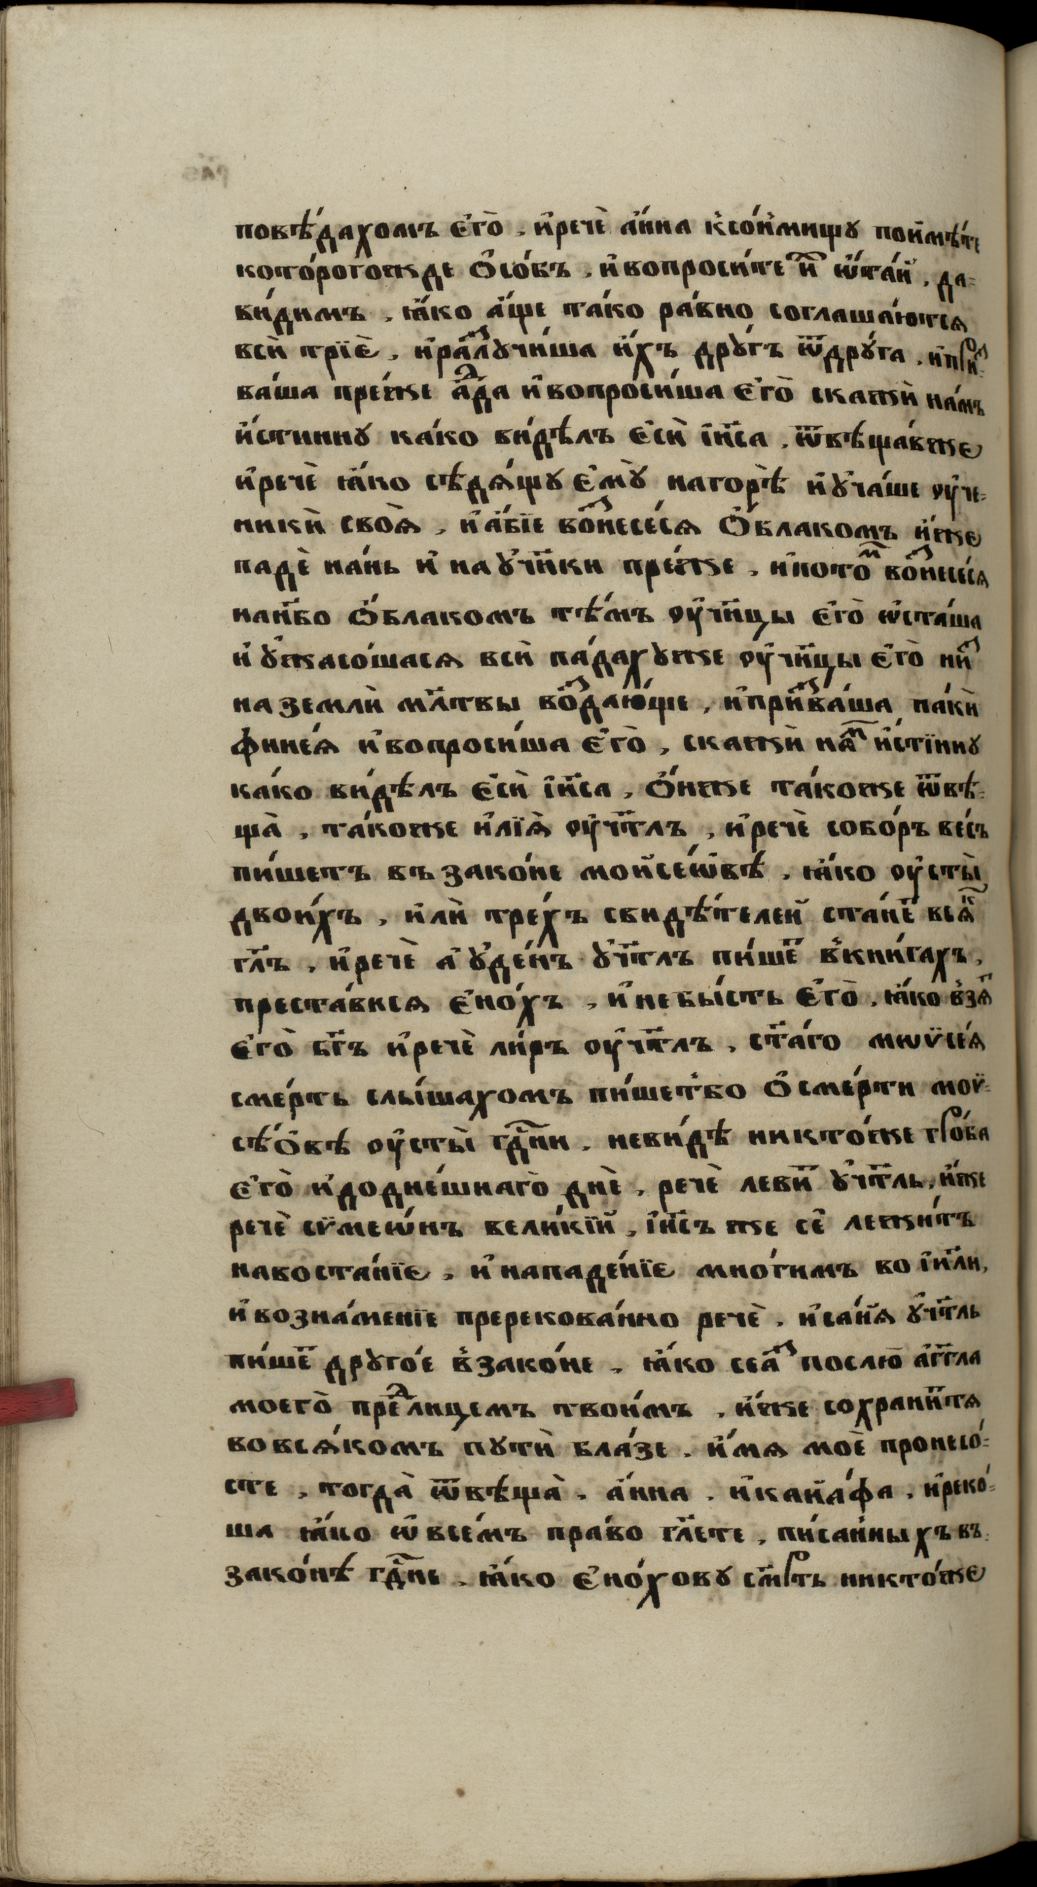 повѣ́дахомъ є҆го̀ . и҆речѐ а҆́нна к҆сонми́щꙋ пои҆мѣ́те
кото́рогождє ѻ҆со́бъ , и҆вопроси́те и҆̑ ѡ҆та́й , да-
ви́димъ , ꙗ҆́ко а҆́ще та́ко ра́вно соглаша́ются
вси̑ трїѐ , и҆разлꙋчи́ша и҆́хъ дрꙋ́гъ ѿдрꙋ́га , и҆призы-
ва́ша пре́жє а҆да́ и҆вопроси́ша є҆го̀ скажѝ на́мъ
и҆́стиннꙋ ка́ко ви́дѣлъ є҆сѝ і҆и҃са . ѿвѣща́вжє
и҆речѐ ꙗ҆́ко сѣдѧ́щꙋ є҆мꙋ̀ нагорѣ̀ и҆ꙋ҆ча́ше ѹ҆че-
никѝ своѧ̑ , и҆а҆́бїе вознесе́сѧ ѻ҆́блакомъ и҆́жє
падѐ на́нь и҆ наꙋ҆чн҃ки пре́жє , и҆пото́м вознесе́сѧ
нан҃бо ѻ҆́блакомъ тѣ́мъ ѹ҆чн҃цы є҆го̀ ѡ҆ста́ша
и҆ ꙋ҆жасо́шасѧ всѝ па́дахꙋжє ѹ҆чн҃цы є҆го̀ ни́ц
на землѝ мл҃твы воздаю́ще , и҆призва́ша па́кѝ
фине́ѧ и҆вопроси́ша є҆го̀ , скажѝ на́м и҆́стїннꙋ
ка́ко ви́дѣлъ є҆сѝ і҆и҃са , ѻ҆́нжє та́кожє ѿвѣ-
ща̀ , та́кожє и҆лїѧ̀ ѹ҆чт҃лъ , и҆речѐ собо́ръ ве́съ
пи́шетъ въ зако́не мойсе́ѡ҆вѣ . ꙗ҆́ко ѹ҆сты̀
двои́хъ , и҆лѝ тре́хъ свидѣ́телей ста́нет всѧ́к
гл҃ъ . и҆речѐ а҆ꙋ҆де́нъ ꙋ҆чт҃лъ пи́шет в҆кни́гахъ ,
преста́висѧ є҆но́хъ , и҆небы́сть є҆го̀ . ꙗ҆́ко в҆зѧ́т
є҆го̀ бг҃ъ и҆речѐ ли́ръ ѹ҆чт҃лъ . ст҃а́го мѡѷсе́ѧ
сме́рть слы́шахомъ пи́шет҆бо ѻ҆сме́рти моѷ-
се́ѻ҆вѣ ѹ҆сты̀ гд҃ни . неви́дѣ никто́жє гро́ба
є҆го̀ и҆доднє́шнагѡ̀ днѐ , речѐ леви́й ꙋ҆чт҃ль , и҆́жє
речѐ сѷмеѡ́нъ вели́кїй , і҆и҃съ жє сє̑ лежи́тъ
навоста́нїе , и҆ нападе́нїе мно́гимъ во і҆и҃ли ,
и҆ возна́менїе пререкова́нно речѐ . и҆са́йѧ ꙋ҆чт҃ль
пи́шет дрꙋго́е в҆зако́не , ꙗ҆́ко се а҆́з послю̀ а҆́гг҃ла
моего̀ предлице́мъ твои́мъ . и҆́жє сохрани́т тѧ
вовсѧ́комъ пꙋтѝ бла́зе . и҆́мѧ моѐ пронесо́-
сте , тогда̀ ѿвѣ́ща̀ . а҆́нна . и҆кайа́фа . и҆реко́-
ша ꙗ҆́ко ѡ҆ все́мъ пра́во гл҃ете , писа́нныхъ въ
зако́нѣ гд҃не , ꙗ҆́ко є҆но́ховꙋ см҃рть никто́жє